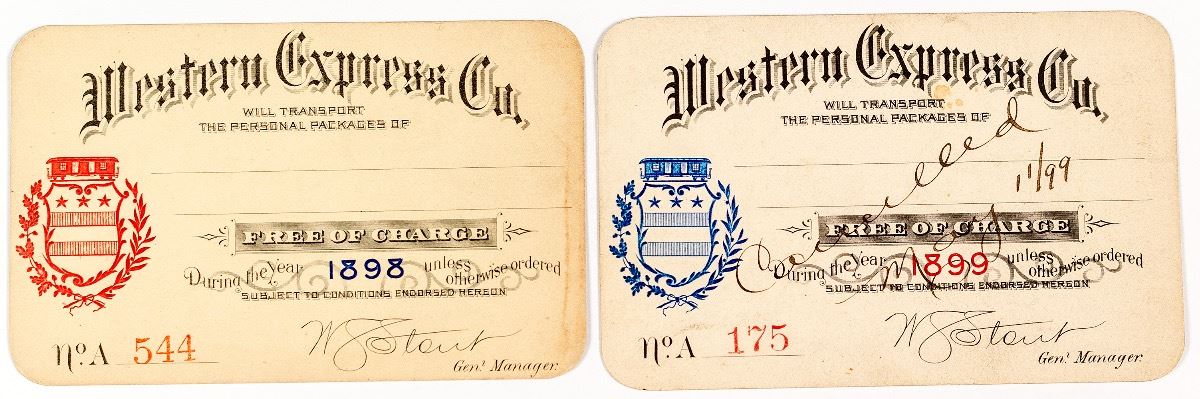 Western Express Co.
WILL TRANSPORT
THE PERSONAL PACKAGES OF
FREE OF CHARGE
During the Year 1898 unless otherwise ordered
SUBJECT TO CONDITIONS ENDORSED HEREON
No. A 544
W S Stout
Genl. Manager.
Western Express Co.
WILL TRANSPORT
THE PERSONAL PACKAGES OF
Cancelled
11/99
FREE OF CHARGE
During the Year 1899 unless otherwise ordered
SUBJECT TO CONDITIONS ENDORSED HEREON
No. A 175
W S Stout
Genl. Manager.